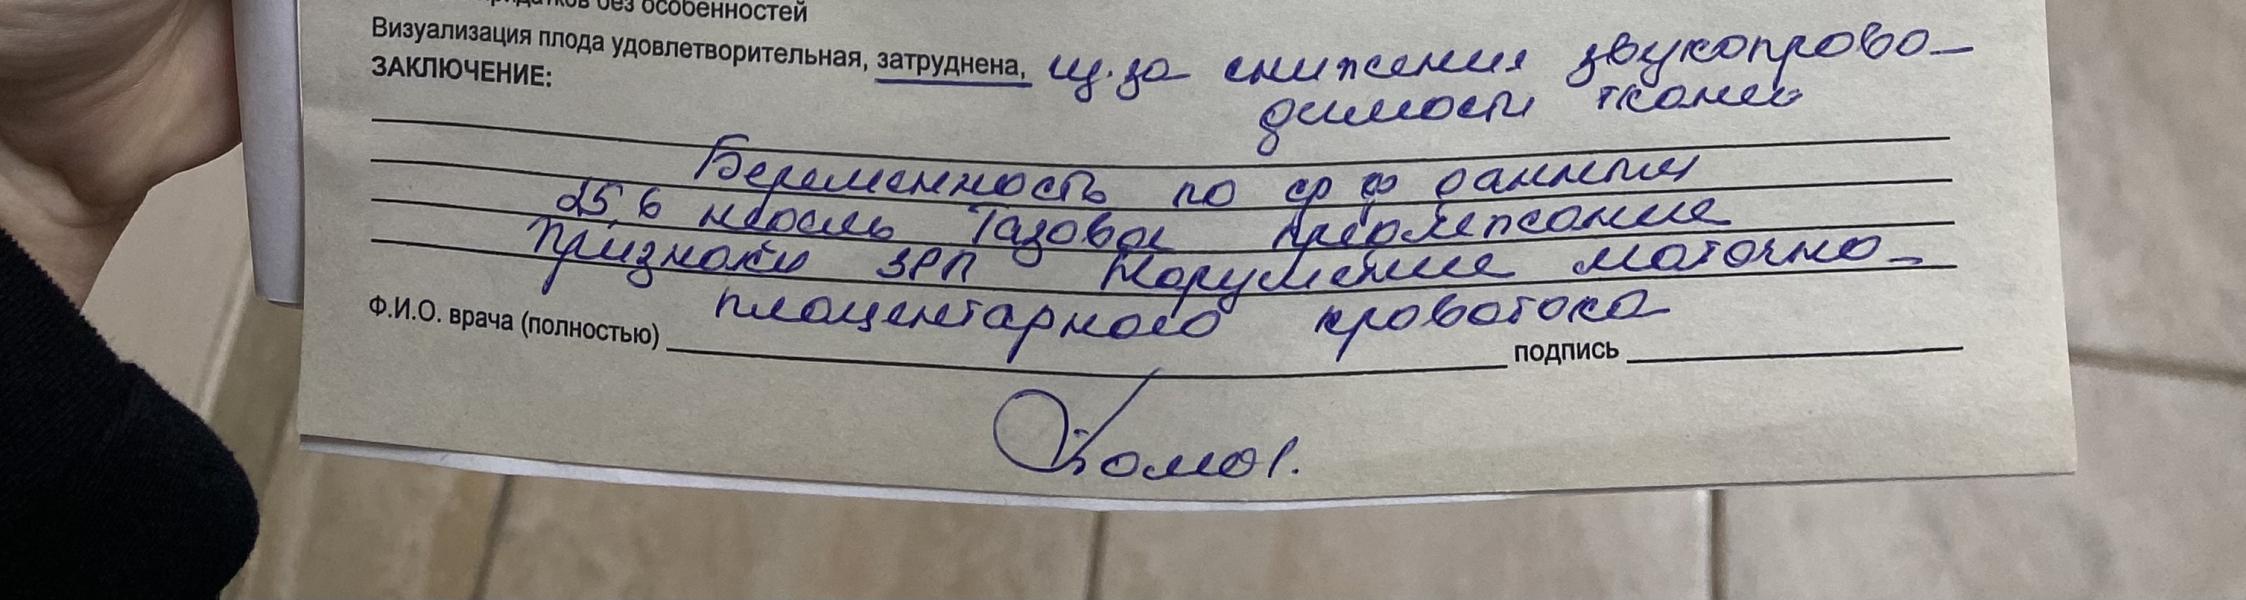 без особенностей
Визуализация плода удовлетворительная, затруднена, из-за снижения звукопрово-
димости тканей
ЗАКЛЮЧЕНИЕ:
Беременность по ср ф данным
25,6 недель Тазовое предлежание
Признаки ЗРП Нарушение маточно-
плацентарного кровотока
Ф.И.О. врача (полностью) подпись